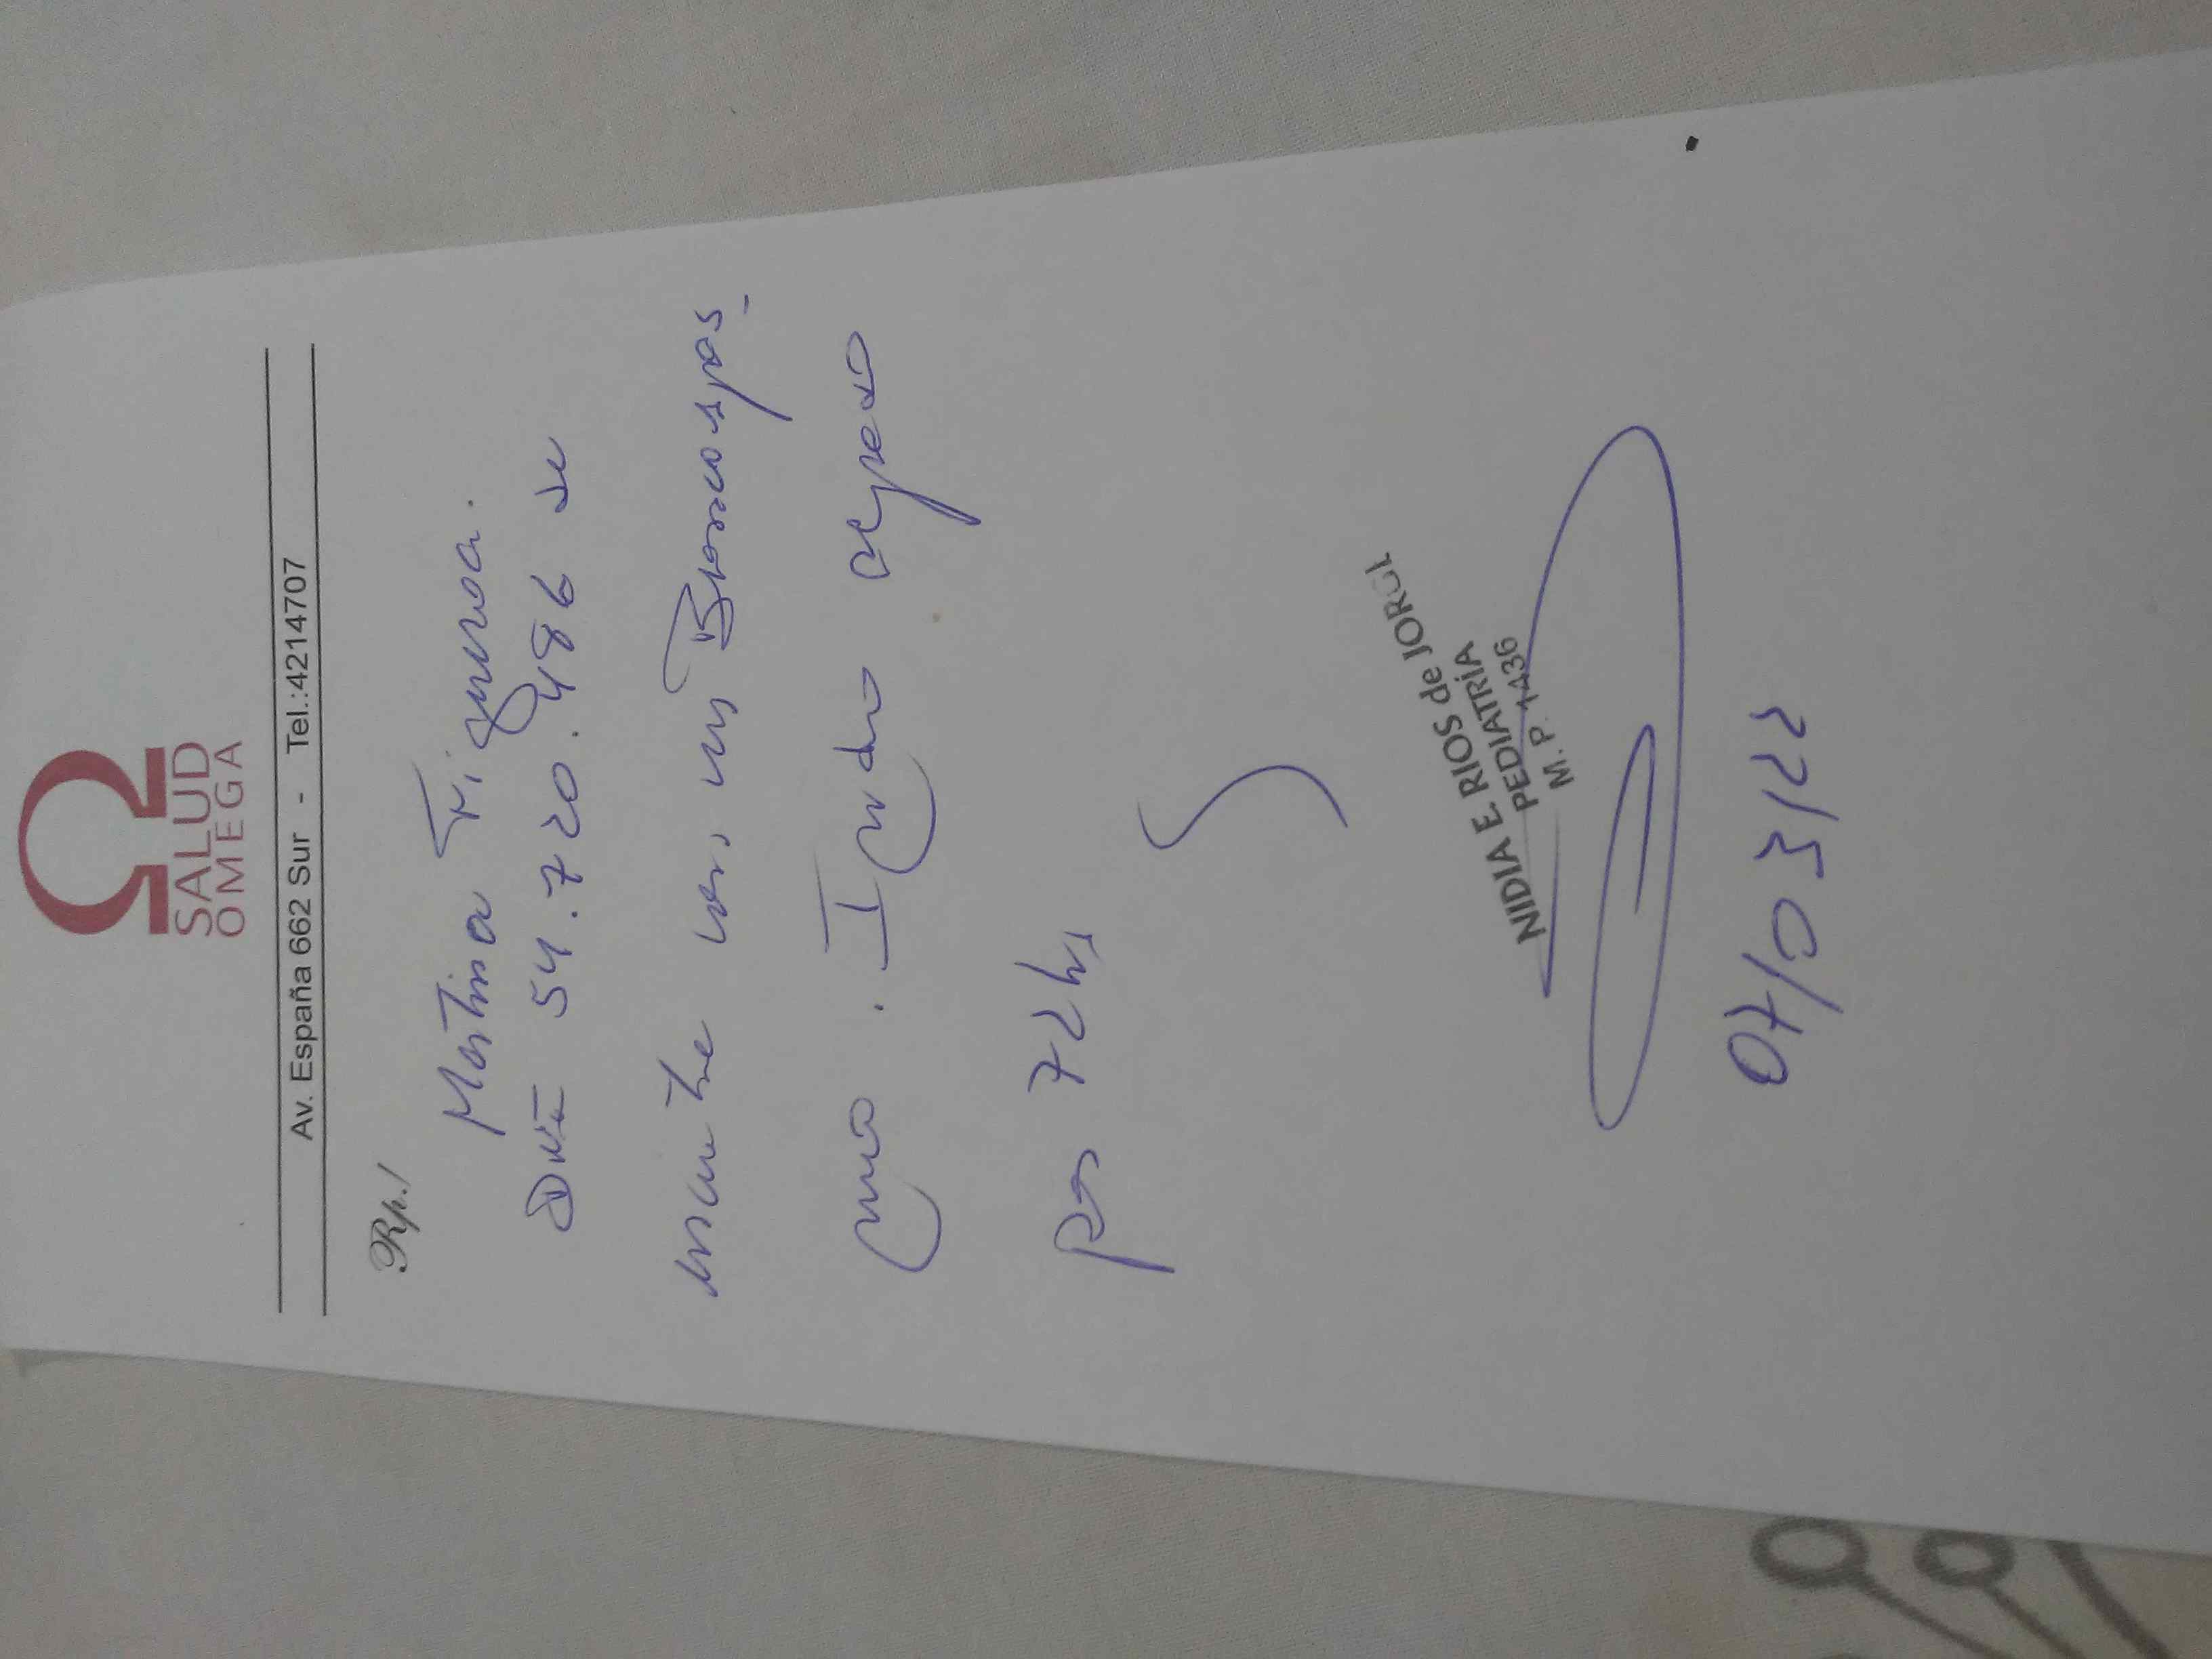 SALUD
OMEGA
Av. España 662 Sur - Tel.:4214707
Rp./
Martina Figueroa.
DNI 54.720.486 se
encuentra con un Broncospas-
mo. Indico reposo
por 72 hs
NIDIA E. RIOS de JORGE
PEDIATRÍA
M. P. 1436